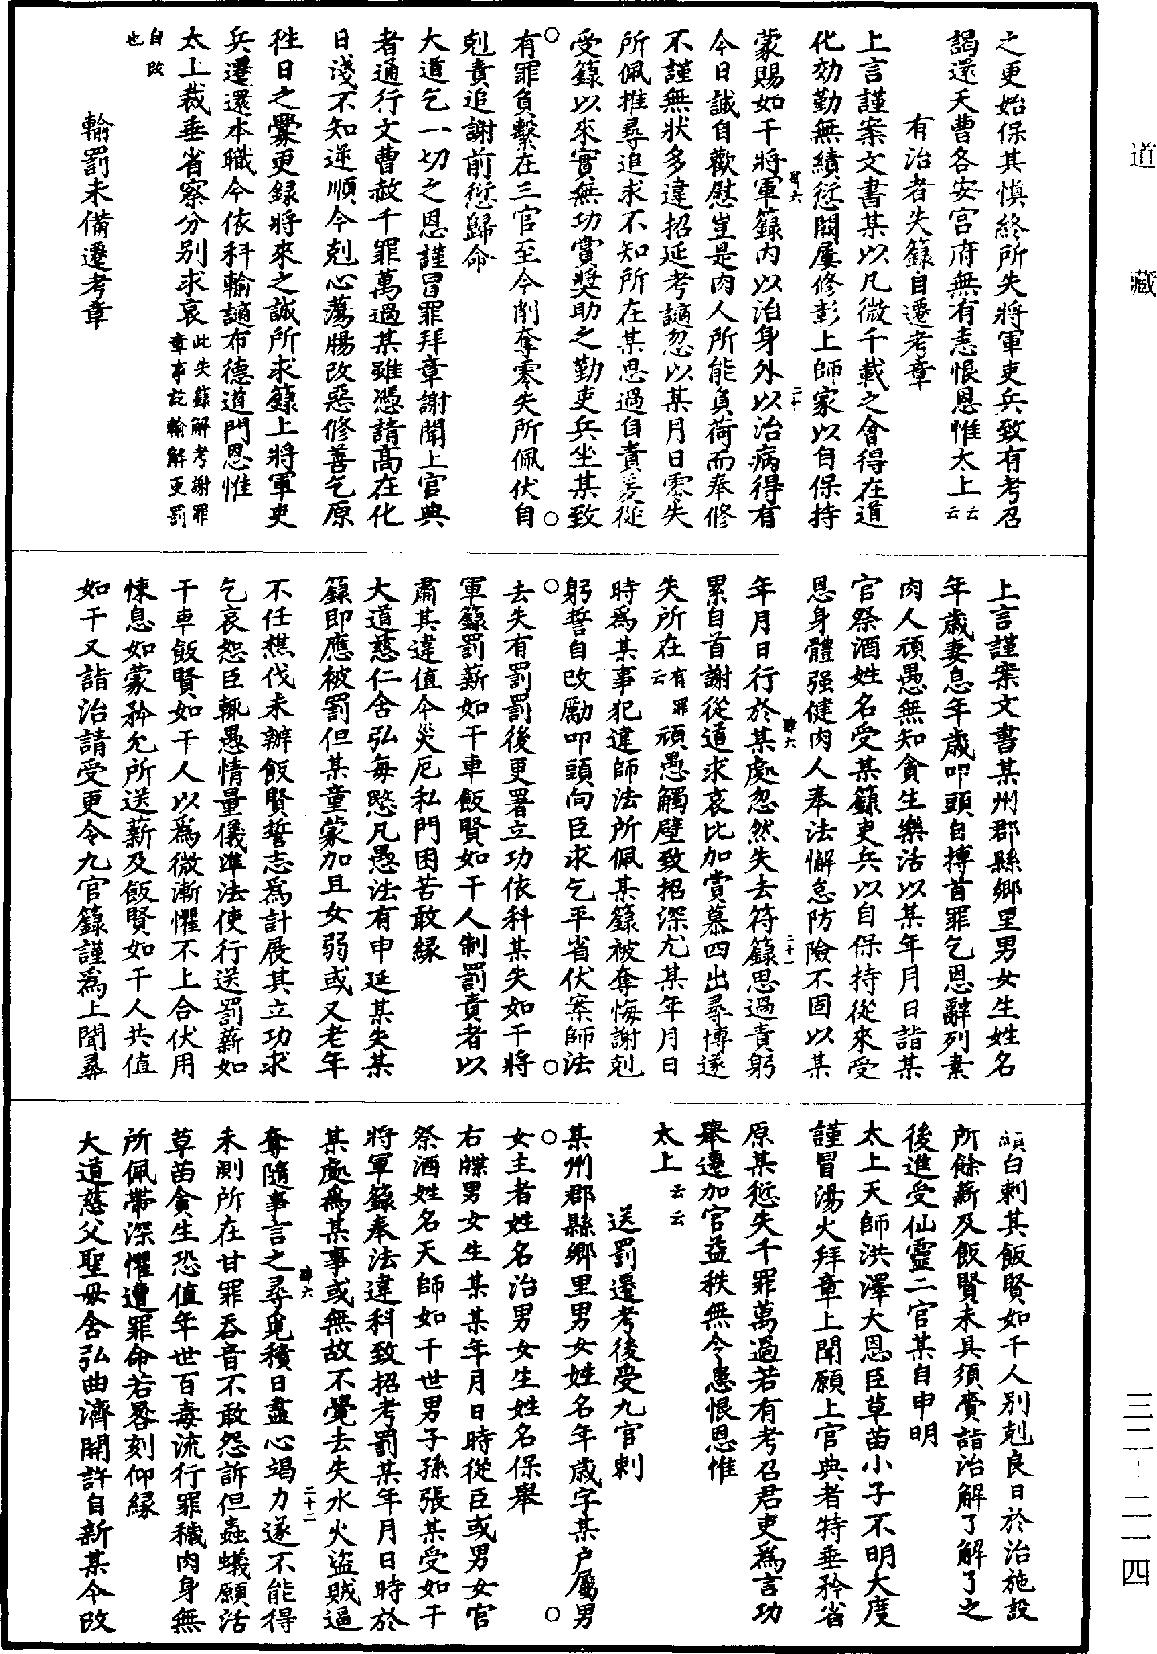 道藏
三二—二一四
之更始保其慎終所失將軍吏兵致有考召
謁還天曹各安宮府無有恚恨恩惟太上云云
有治者失籙自遷考章
上言謹案文書某以凡微千載之會得在道
化効勤無績愆闕屢修彭上師家以自保持
蒙賜如干將軍籙內以治身外以治病得有
今日誠自歡慰豈是肉人所能負荷而奉修
不謹無狀多違招延考謫忽以某月日零失
所佩推尋追求不知所在某思過自責爰從
受籙以來實無功賞獎助之勤吏兵坐某致
有罪負繫在三官至今削奪零失所佩伏自
剋責追謝前愆歸命
大道乞一切之恩謹冒罪拜章謝聞上官典
者通行文曹赦千罪萬過某雖憑請高在化
日淺不知逆順今剋心蕩腸改惡修善乞原
徃日之舋更録將來之誠所求籙上將軍吏
兵遷還本職今依科輸謫布德道門恩惟
太上裁垂省察分別求哀此失籙解考謝罪
章事訖輸解更罰
自改
也
輸罰未備遷考章
上言謹案文書某州郡縣鄉里男女生姓名
年歲妻息年歲叩頭自搏首罪乞恩辭列素
肉人頑愚無知貪生樂活以某年月日詣某
官祭酒姓名受某籙吏兵以自保持從來受
恩身體强健肉人奉法懈怠防險不固以某
年月日行於某處忽然失去符籙思過責躬
累自首謝從道求哀比加賞慕四出尋博遂
失所在有罪云頑愚觸壁致招深尤某年月日
時爲某事犯違師法所佩某籙被奪悔謝剋
躬誓自改勵叩頭向臣求乞平省伏案師法
去失有罰罰後更署立功依科某失如干將
軍籙罰薪如干車飯賢如干人制罰責者以
肅其違值今災厄私門困苦敢緣
大道慈仁含弘每愍凡愚法有申延某失某
籙即應被罰但某童蒙加且女弱或又老年
不任樵伐未辦飯賢誓志爲計展其立功求
乞哀恕臣輒愚情量儀準法使行送罰薪如
干車飯賢如干人以爲微漸懼不上合伏用
悚息如蒙矜允所送薪及飯賢如干人共值
如干又詣治請受更令九官籙謹爲上聞尋
頫白剌其飯賢如干人別剋良日於治施設
所餘薪及飯賢未具須賫詣治解了解了之
後進受仙靈二官某自申明
太上天師洪澤大恩臣草苗小子不明大度
謹冒湯火拜章上聞願上官典者特垂矜省
原某愆失千罪萬過若有考召君吏爲言功
舉遷加官益秩無令恚恨恩惟
太上云云
送罰遷考後受九官剌
某州郡縣鄉里男女姓名年歲字某户屬男
女主者姓名治男女生姓名保舉
右牒男女生某某年月日時從臣或男女官
祭酒姓名天師如干世男子孫張某受如干
將軍籙奉法違科致招考罰某年月日時於
某處爲某事或無故不覺去失水火盜賊逼
奪隨事言之尋覓積日盡心竭力遂不能得
未測所在甘罪吞音不敢怨訴但蟲蟻願活
草苗貪生恐值年世百毒流行罪穢肉身無
所佩帶深懼遭罪命若晷刻仰緣
大道慈父聖母含弘曲濟開許自新某今改